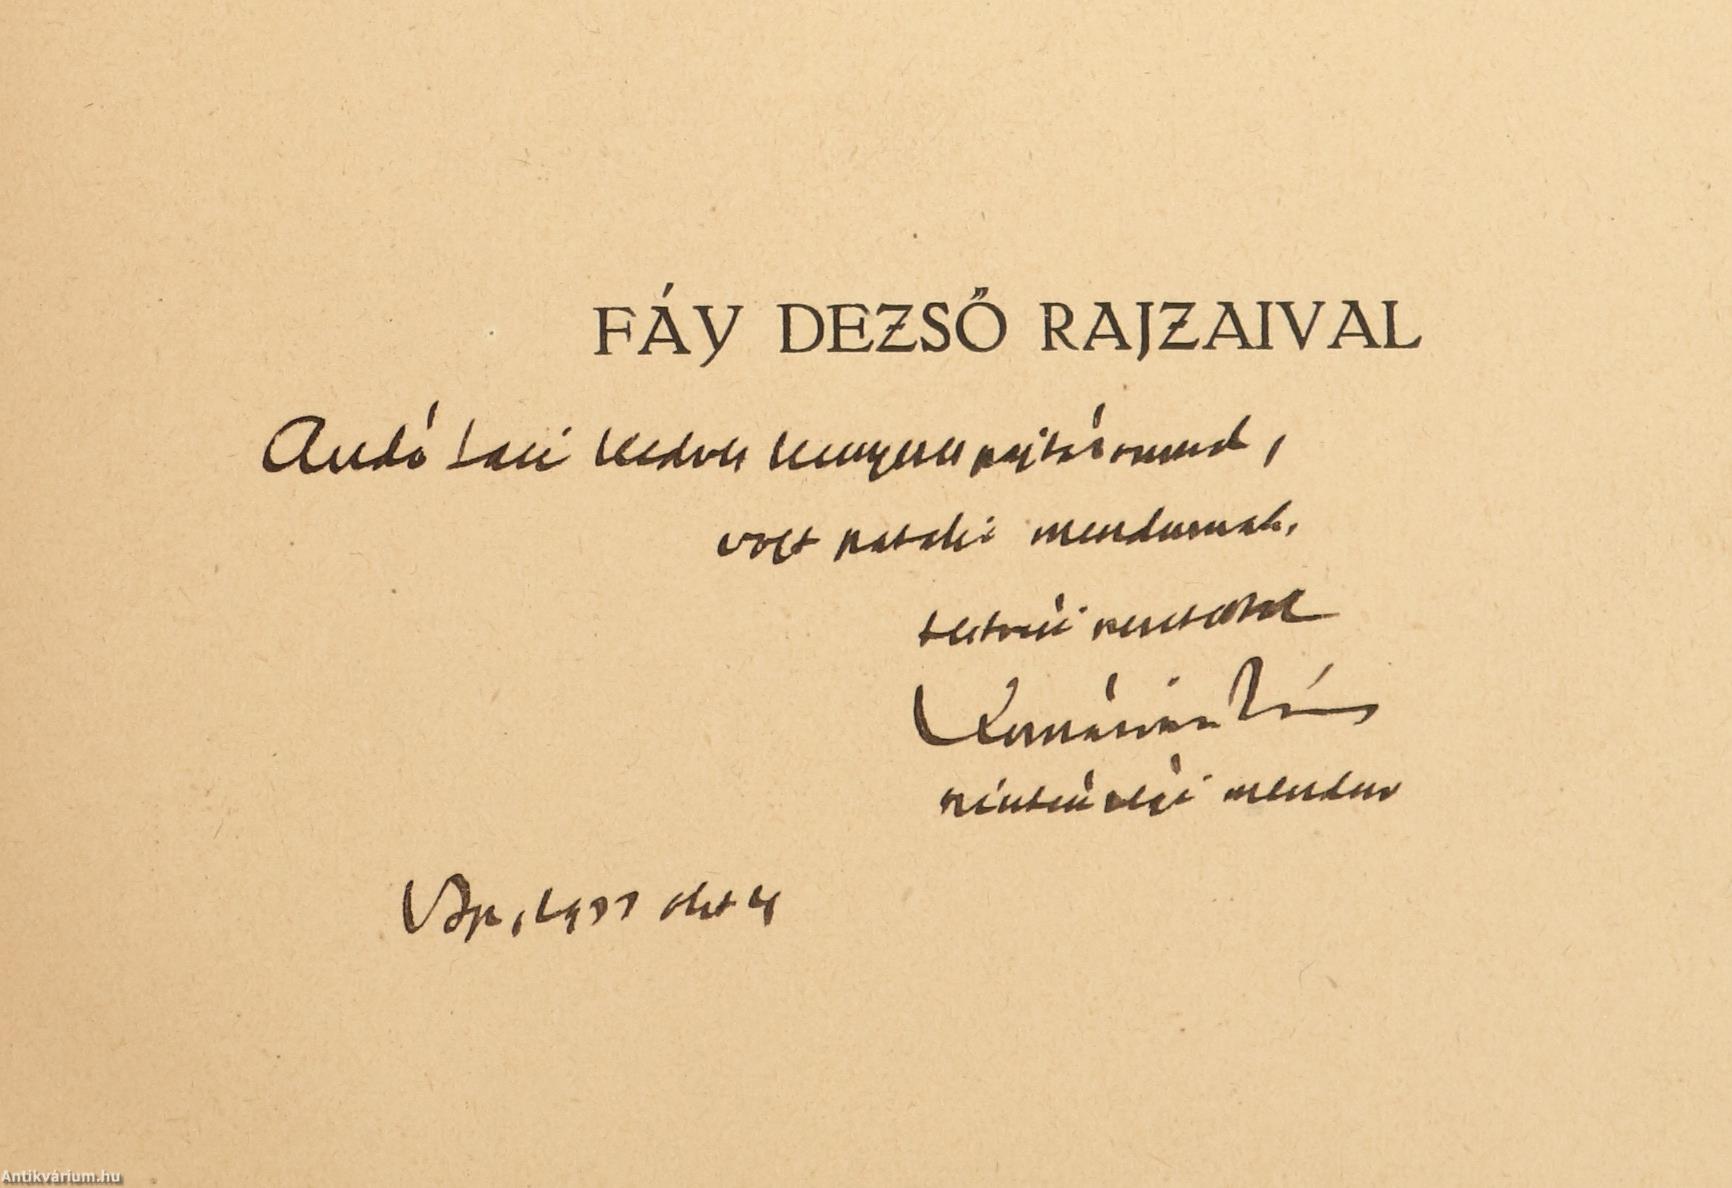 FÁY DEZSŐ RAJZAIVAL
Andó Laci kedves kenyeres pajtásomnak,
volt pataki mendurnak,
testvéri szeretettel
Komáromi János
mendur
Bp, 1933 okt 4
Antikvárium.hu